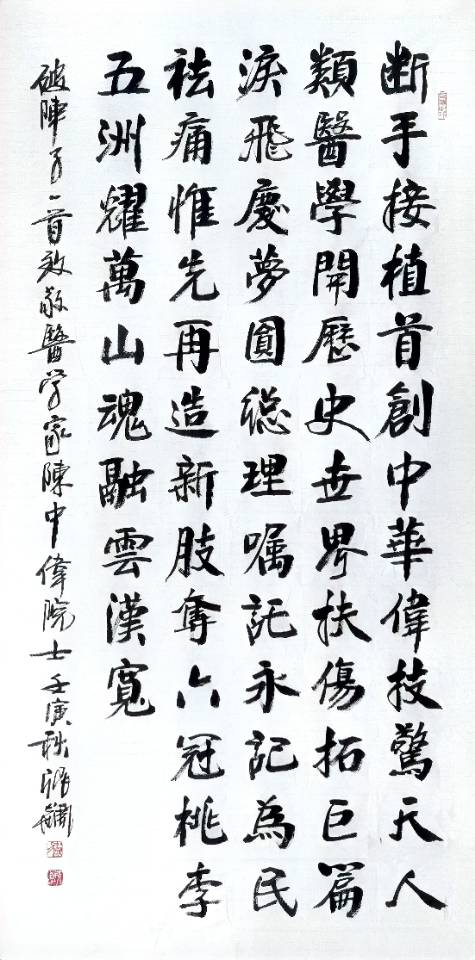 断手接植首創中華偉技驚天人
類醫學開歷史世界扶傷拓巨篇
淚飛慶夢圓總理囑託永記為民
祛痛惟先再造新肢奪六冠桃李
五洲耀萬山魂融雲漢寬
破陣子一首致敬醫学家陳中偉院士壬寅秋